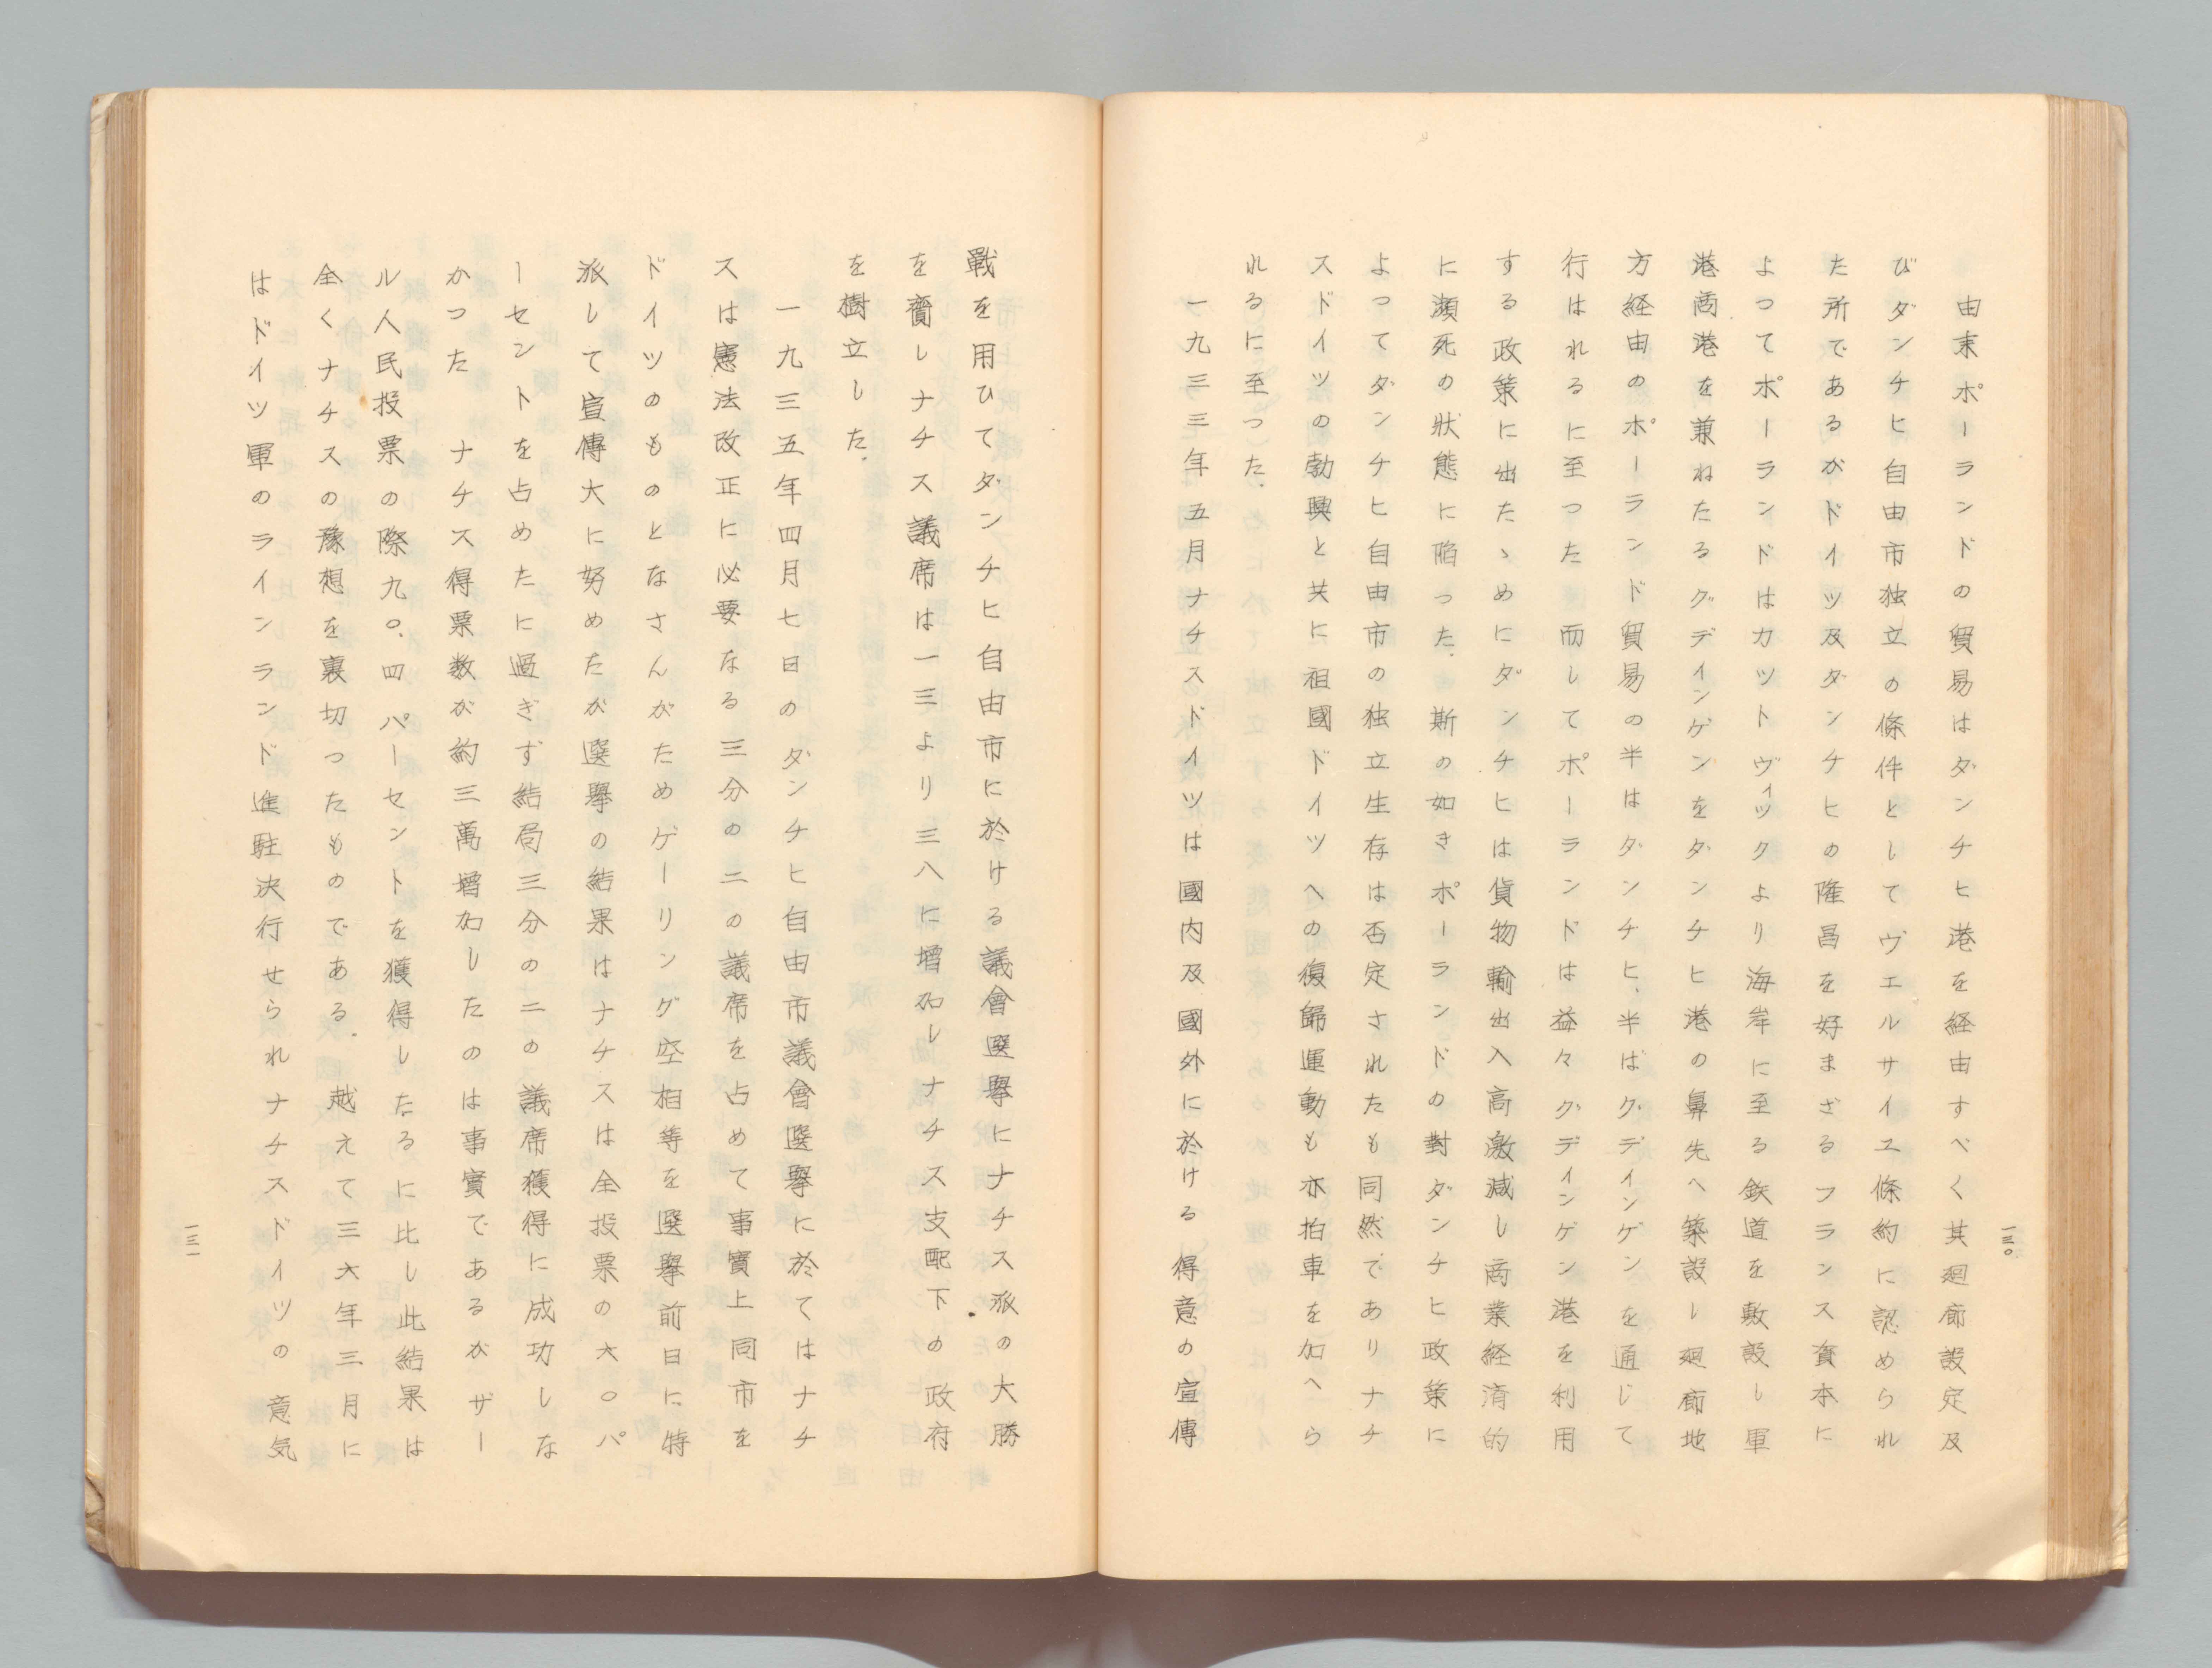 由来ポーランドの貿易はダンチヒ港を経由すべく其廻廊設定及
びダンチヒ自由市独立の條件としてヴエルサイユ條約に認められ
た所であるがドイツ及ダンチヒの隆昌を好まざるフランス資本に
よつてポーランドはカツトヴィツクより海岸に至る鉄道を敷設し軍
港商港を兼ねたるグディンゲンをダンチヒ港の鼻先へ築設し廻廊地
方経由のポーランド貿易の半はダンチヒ、半ばグディンゲンを通じて
行はれるに至つた 而してポーランドは益々グディンゲン港を利用
する政策に出たゝめにダンチヒは貨物輸出入高激減し商業経済的
に瀕死の狀態に陥つた.斯の如きポーランドの對ダンチヒ政策に
よつてダンチヒ自由市の独立生存は否定されたも同然でありナチ
スドイツの勃興と共に祖國ドイツへの復歸運動も亦拍車を加へら
れるに至つた.
一九三三年五月ナチスドイツは國内及國外に於ける得意の宣傳
一三〇
戰を用ひてダンチヒ自由市に於ける議會選擧にナチス派の大勝
を齎しナチス議席は一三より三八に増加しナチス支配下の政府
を樹立した.
一九三五年四月七日のダンチヒ自由市議會選擧に於てはナチ
スは憲法改正に必要なる三分の二の議席を占めて事實上同市を
ドイツのものとなさんがためゲーリング空相等を選擧前日に特
派して宣傳大に努めたが選擧の結果はナチスは全投票の六〇パ
ーセントを占めたに過ぎず結局三分の二の議席獲得に成功しな
かつた ナチス得票数が約三萬増加したのは事實であるがザー
ル人民投票の際九〇.四パーセントを獲得したるに比し此結果は
全くナチスの豫想を裏切つたものである.越えて三六年三月に
はドイツ軍のラインランド進駐決行せられナチスドイツの意気
一三一